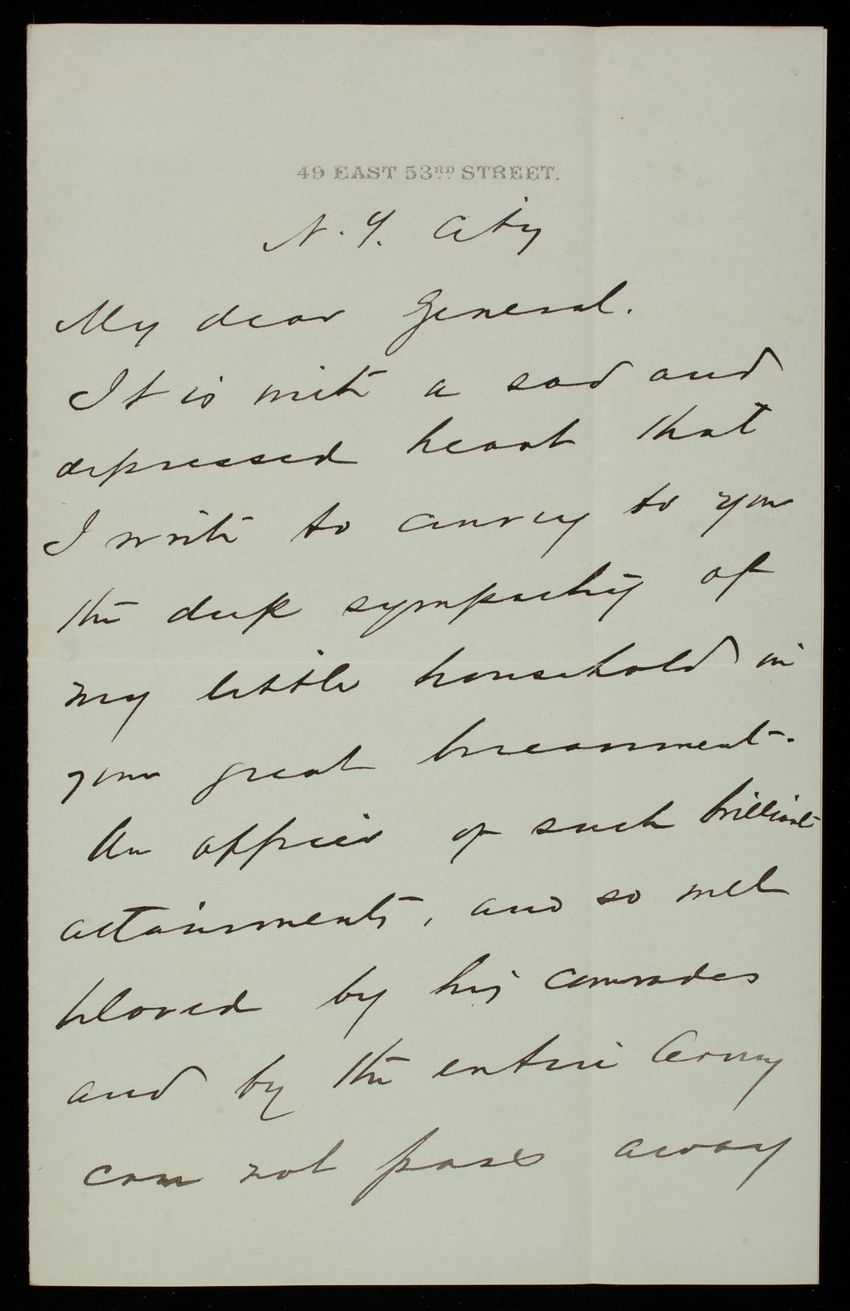 49 EAST 53RD STREET.
N. Y. City
My dear General.
It is with a sad and
depressed heart that
I write to convey to you
the deep sympathy of
my little household in
your great bereavement.
An officer of such brilliant
attainments, and so well
beloved by his comrades
and by the entire Army
can not pass away